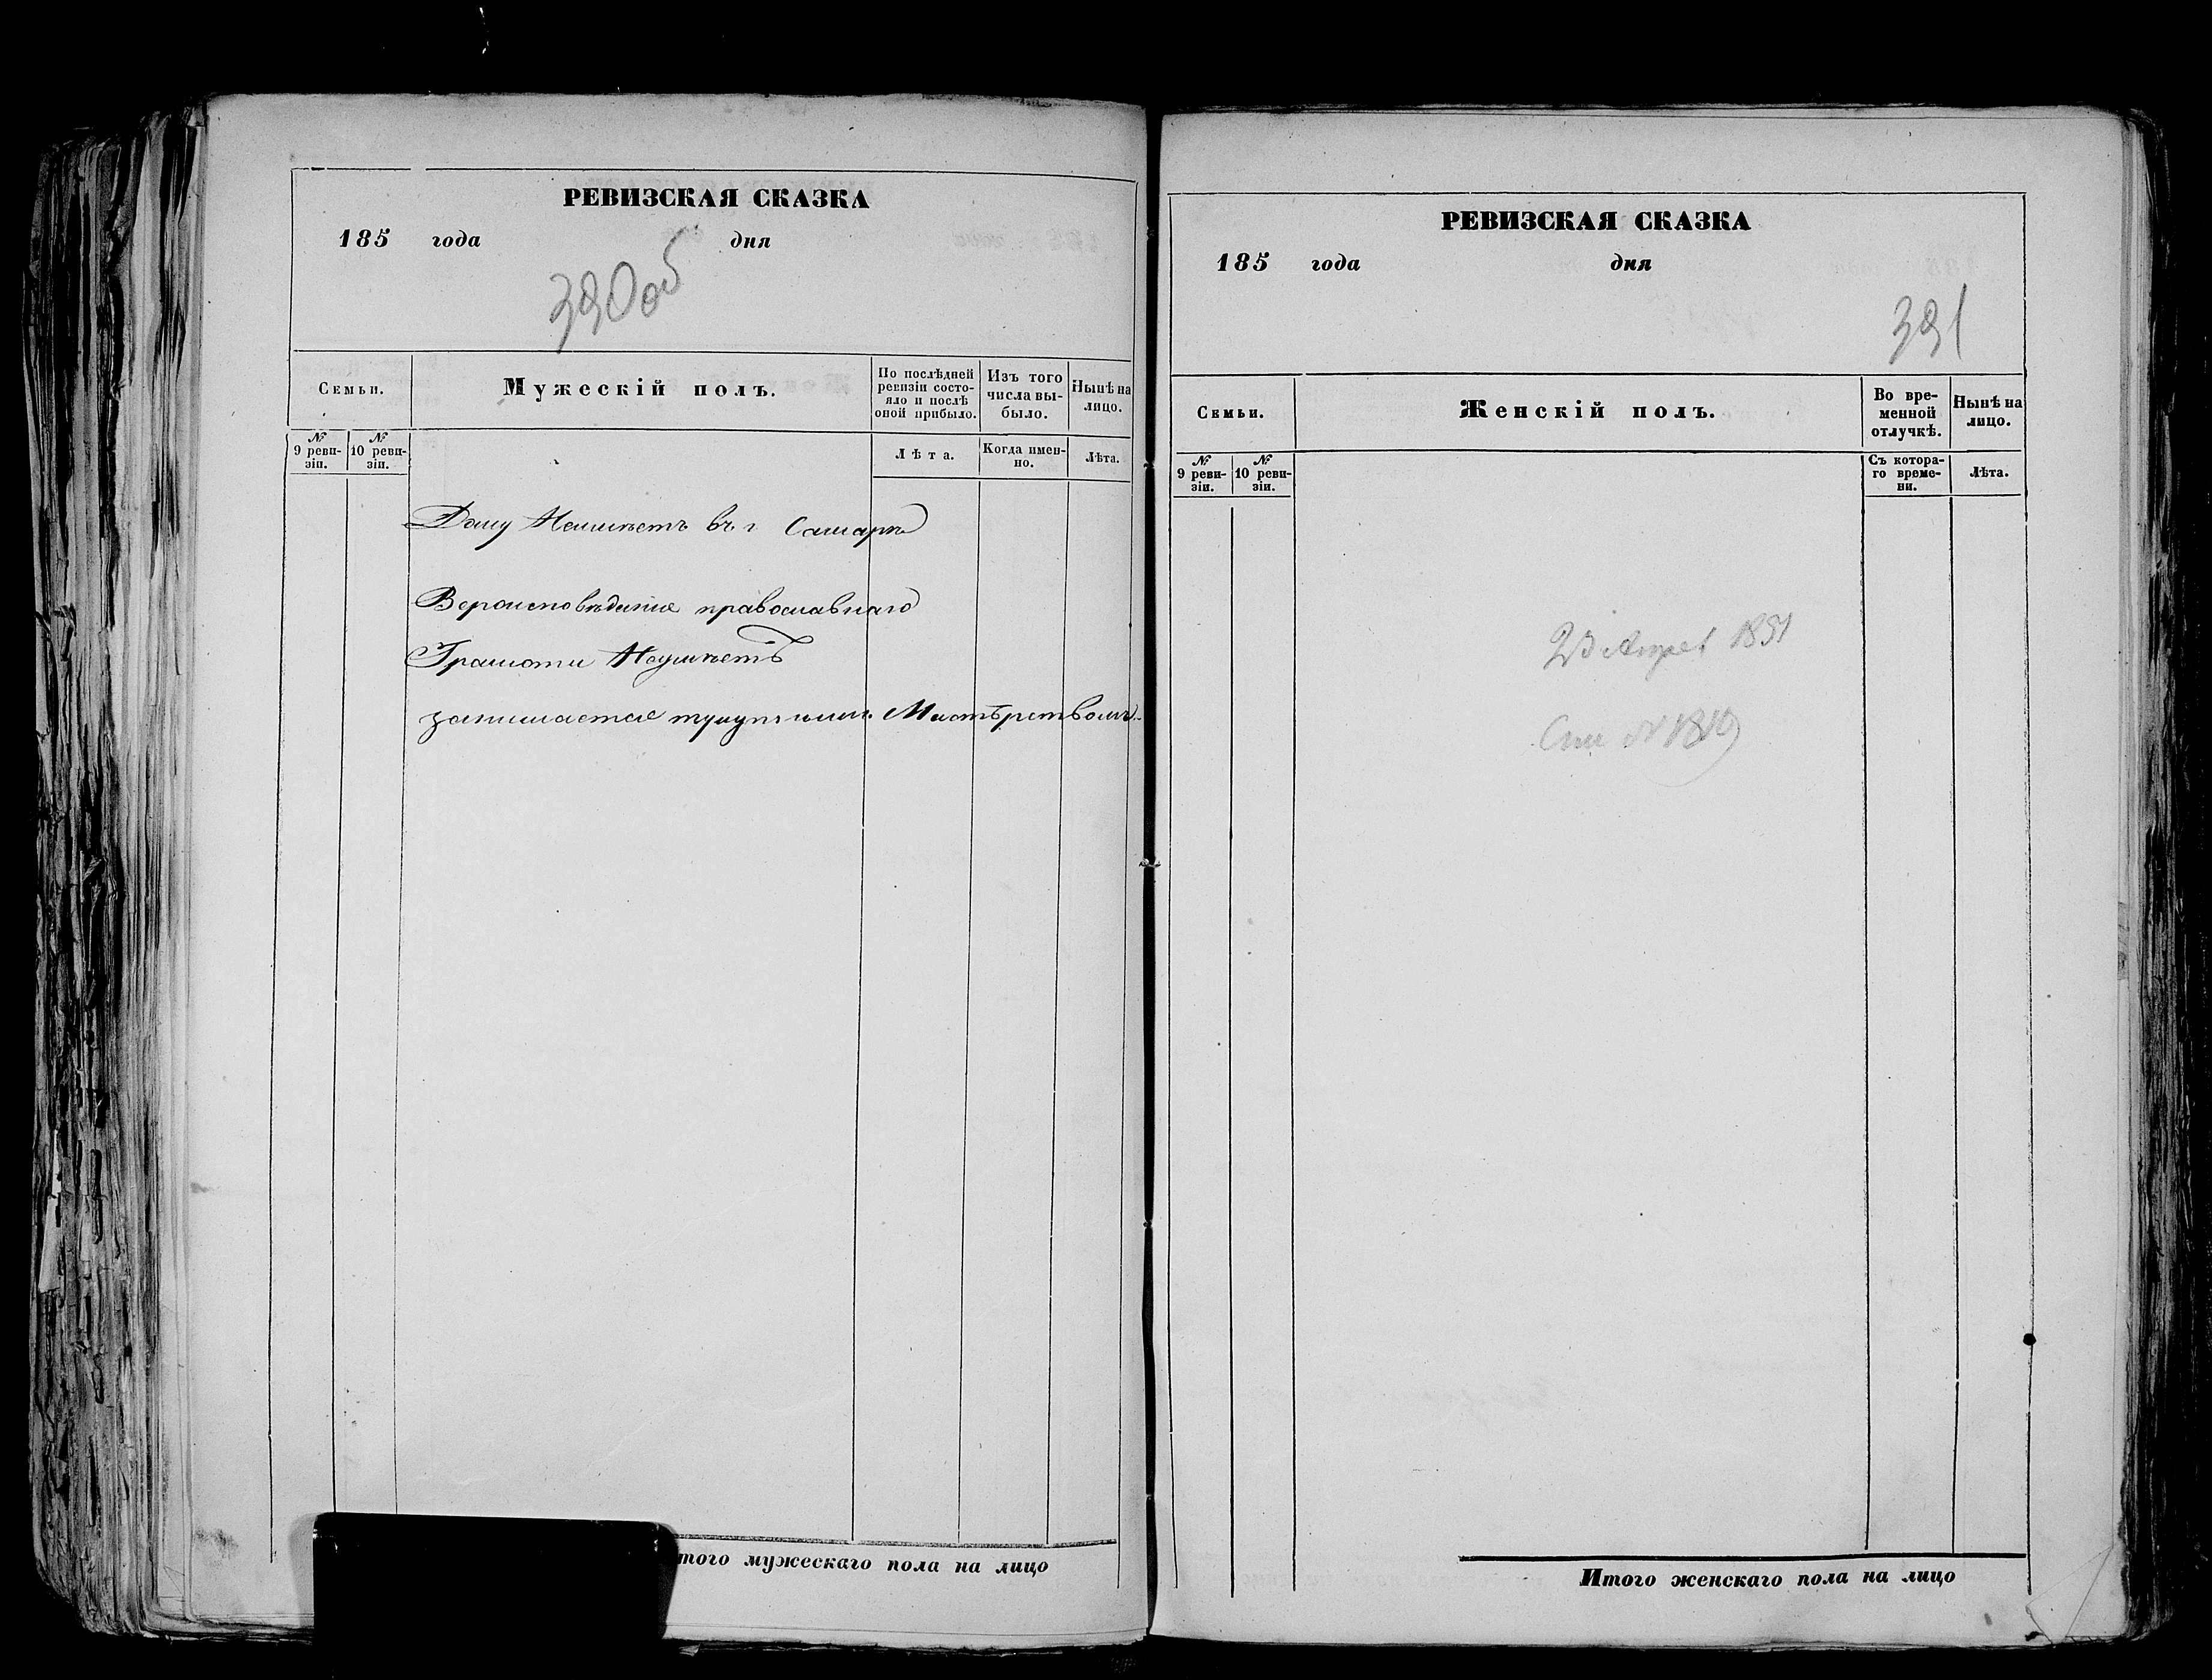 РЕВИЗСКАЯ СКАЗКА
185 года дня
390об
Семьи.
Мужескій полъ.
По послѣдней
ревизіи состо-
яло и послѣ
оной прибыло.
Изъ того
числа вы-
было.
Нынѣ на
лицо.
№
9 реви-
зіи.
№
10 реви-
зіи.
Лѣта.
Когда имен-
но.
Лѣта.
Дому Неимѣетъ въ г Самарѣ
Вероисповѣдиние православнаго
Грамоти Неумѣетъ
занимается Мастѣрствомъ
того мужескаго пола на лицо
РЕВИЗСКАЯ СКАЗКА
185 года дня
391
Семьи.
Женскій полъ.
Во вре-
менной
отлучкѣ.
Нынѣ на
лицо.
№
9 реви-
зіи.
№
10 реви-
зіи.
Съ котора-
го време-
ни.
Лѣта.
1851
Итого женскаго пола на лицо